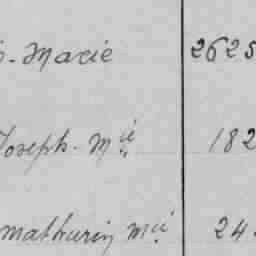 -Marie 2625
Joseph-Mie 182
Mathurin Mie 24